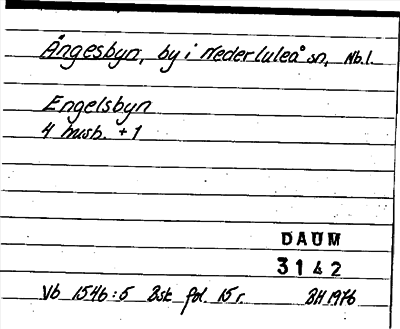 Ängesbyn, by i Nederluleå sn, Nb.l.
Engelsbyn
4 hush. + 1
DAUM
3142
Vb 1546:5 Bsk fol. 15 r. BH 1976